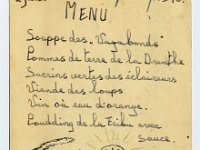 MENU
Souppe des "Vagabonds"
Pommes de terre de la Dranthe
vertes des éclaireurs
Viande des loups
Vin où eau d'orange.
Poudding de la Tribu avec
sauce.